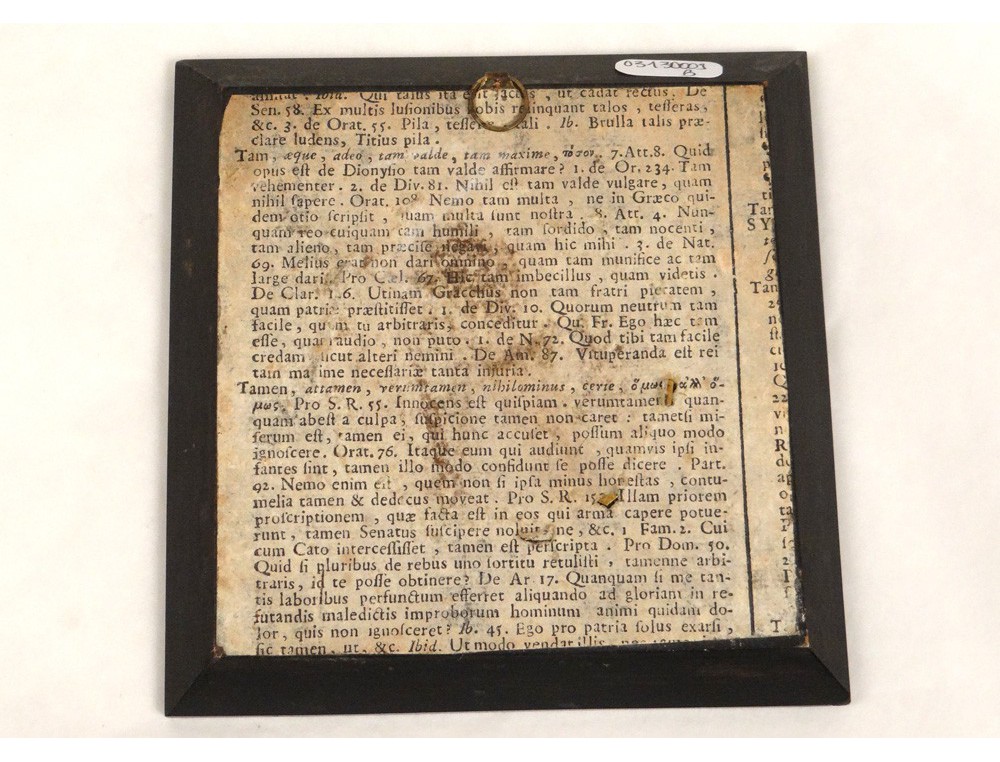 03130001
B
Ibid. Qui talus ita erit jactus, ut cadat rectus. De
Sen. 58. Ex multis lusionibus nobis relinquant talos, tesseras,
&c. 3. de Orat. 55. Pila, tesseræ, tali. Ib. Brulla talis præ-
clare ludens, Titius pila.
Tam, æque, adeo, tam valde, tam maxime, 7. Att. 8. Quid
opus est de Dionysio tam valde affirmare? 1. de Or. 234. Tam
vehementer. 2. de Div. 81. Nihil est tam valde vulgare, quam
nihil sapere. Orat. 108 Nemo tam multa, ne in Græco qui-
dem otio scripsit, quam multa sunt nostra. 8. Att. 4. Nun-
quam reo cuiquam tam humili, tam sordido, tam nocenti,
tam alieno, tam præcise negavi, quam hic mihi. 3. de Nat.
69. Melius erat non dari omnino, quam tam munifice ac tam
large dari. Pro Cæl. 67. Hic tam imbecillus, quam videtis.
De Clar. 126. Utinam Gracchus non tam fratri pietatem,
quam patriæ præstitisset. 1. de Div. 10. Quorum neutrum tam
facile, quam tu arbitraris, conceditur. Qu. Fr. Ego hæc tam
esse, quam audio, non puto. 1. de N. 72. Quod tibi tam facile
credam sicut alteri nemini. De Am. 87. Vituperanda est rei
tam maxime necessariæ tanta injuria.
Tamen, attamen, verumtamen, nihilominus, certe, ὅμως, ἀλλ' ὅ-
μως. Pro S. R. 55. Innocens est quispiam. verumtamen quan-
quam abest a culpa, suspicione tamen non caret: tametsi mi-
serum est, tamen ei, qui hunc accuset, possum aliquo modo
ignoscere. Orat. 76. Itaque eum qui audiunt, quamvis ipsi in-
fantes sint, tamen illo modo confidunt se posse dicere. Part.
92. Nemo enim est, quem non si ipsa minus honestas, contu-
melia tamen & dedecus moveat. Pro S. R. Illam priorem
proscriptionem, quæ facta est in eos qui arma capere potue-
runt, tamen Senatus suscipere noluit: ne, &c. 1 Fam. 2. Cui
cum Cato intercessisset, tamen est perscripta. Pro Dom. 50.
Quid si pluribus de rebus uno sortitu retulisti, tamenne arbi-
traris, id te posse obtinere? De Ar. 17. Quanquam si me tan-
tis laboribus perfunctum efferret aliquando ad gloriam in re-
futandis maledictis improborum hominum animi quidam do-
lor, quis non ignosceret? Ib. 45. Ego pro patria solus exarsi,
sic tamen, ut, &c. Ibid. Ut modo vendat illis
Tam
SY
Tam